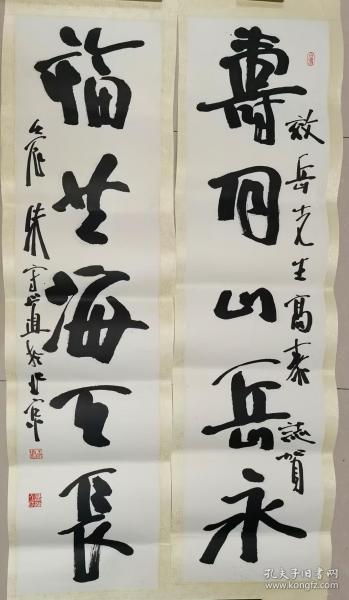 壽同山岳永
效岳先生高壽 誌賀
福共海天長
壬辰 朱守道於北京
孔夫子旧书网